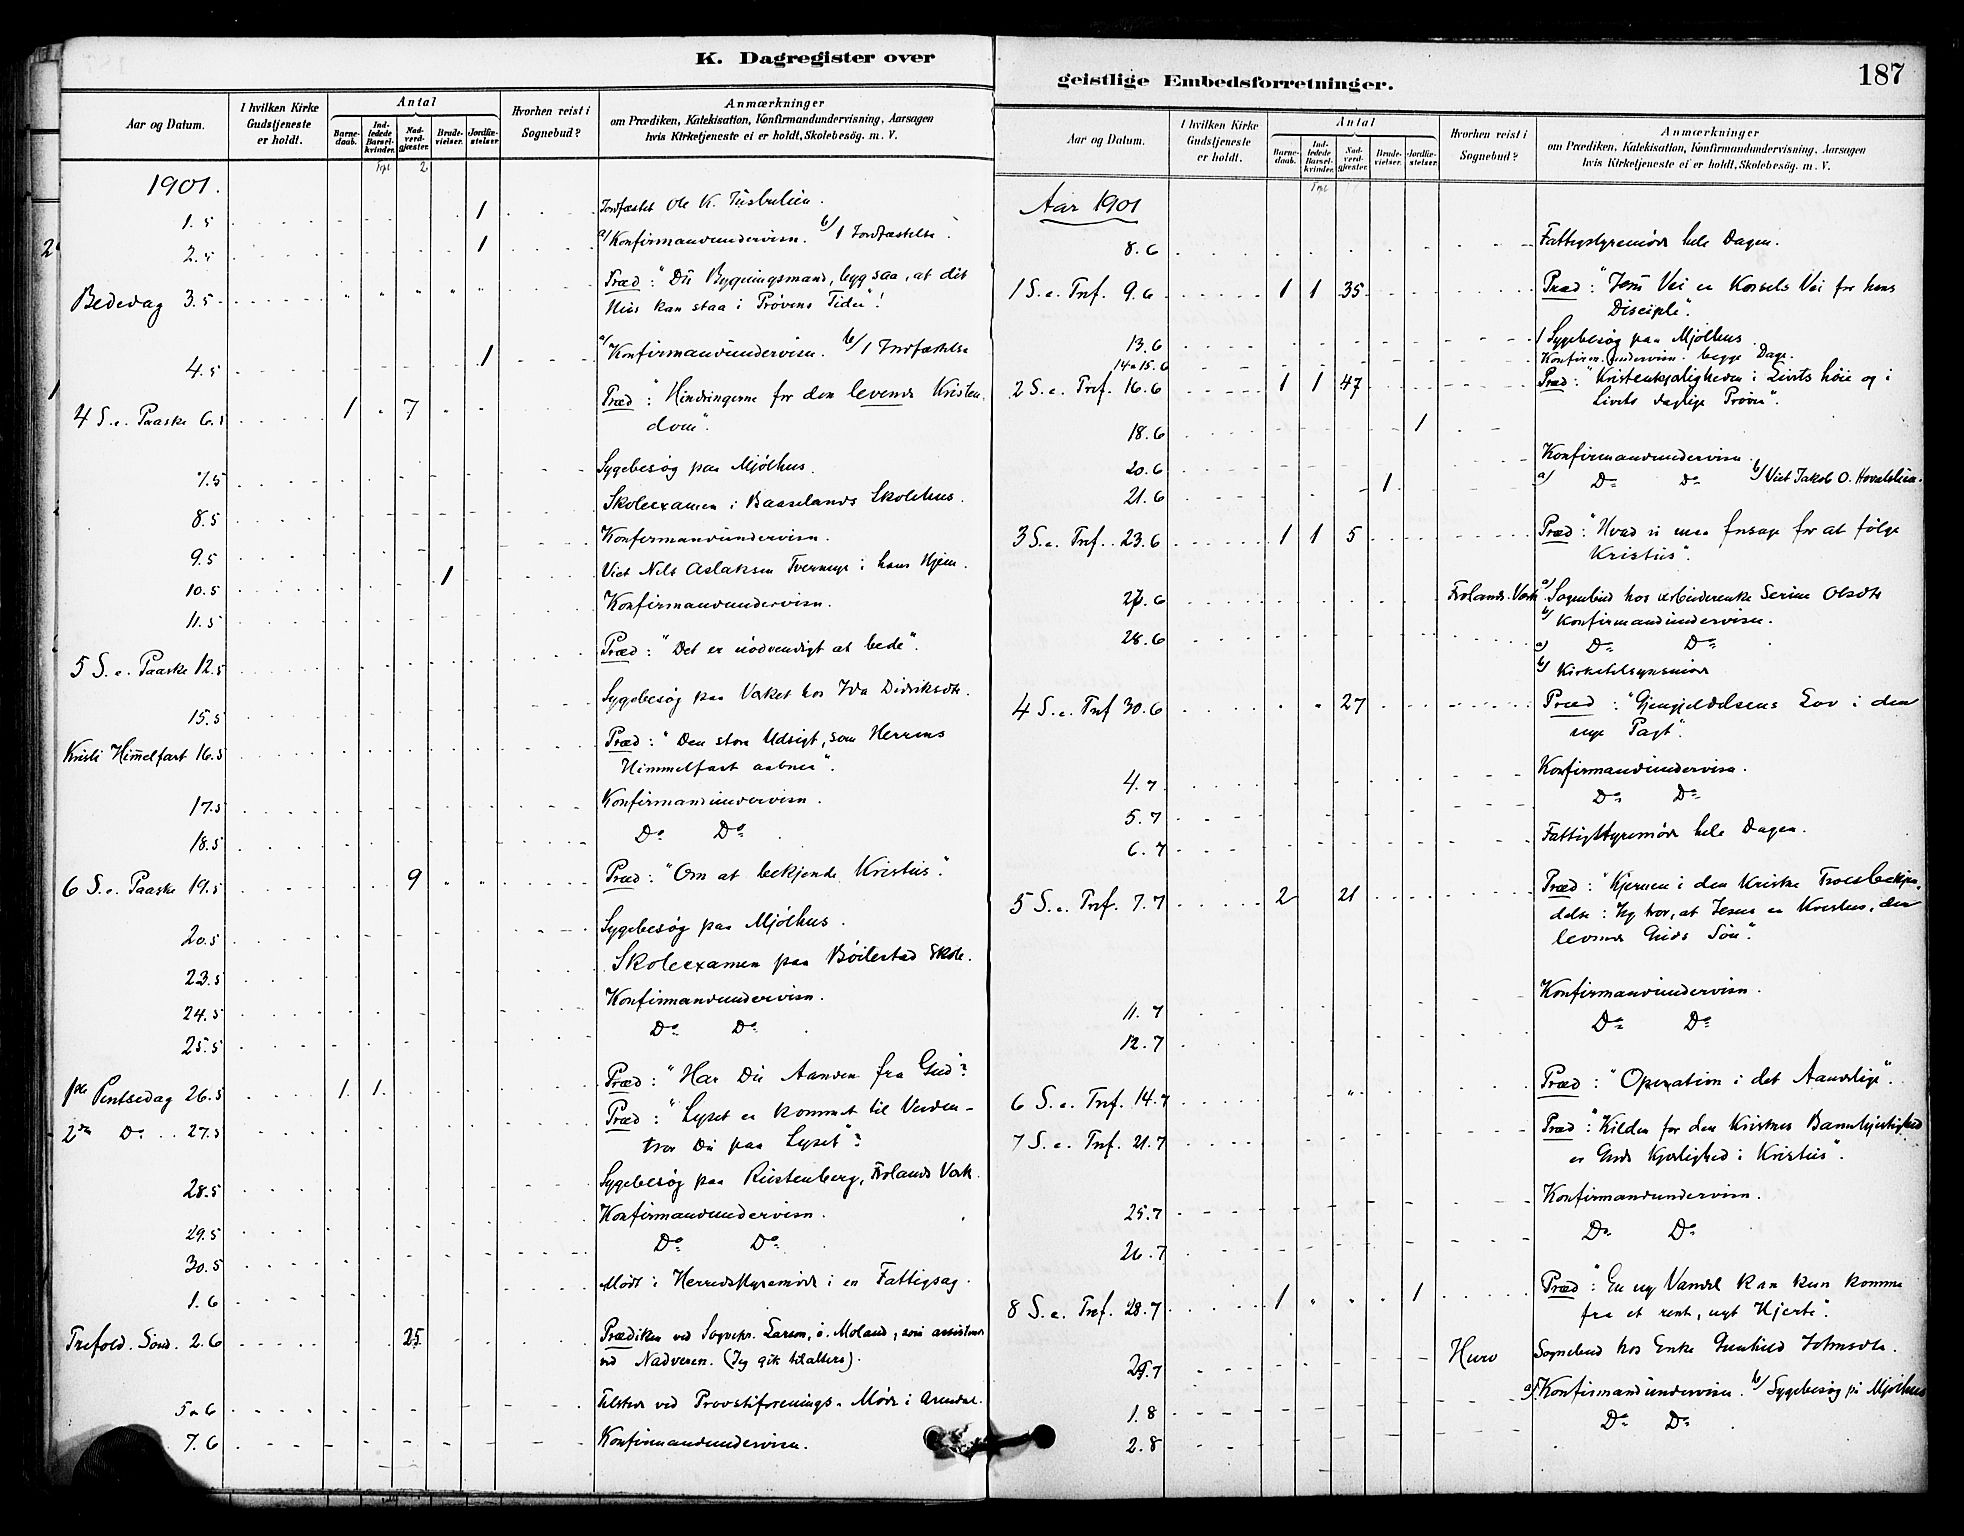 K. Dagregister over
Aar og Datum.
I hvilken Kirke Gudstjeneste er holdt.
Antal
Barne-daab.
Ind-ledede Barsel-kvinder.
Nad-verd-gjæster.
Brude-vielser.
Jordfæ-stelser
Hvorhen reist i Sognebud?
Anmærkninger
om Prædiken, Katekisation, Konfirmandundervisning, Aarsagen
hvis Kirketjeneste ei er holdt, Skolebesög. m. V.
1901.
1.5 1 Jordfæstet Ole K.
2.5 1 a/ Konfirmandundervisn. b/ 1 Jordfæstelse.
Bededag 3.5 Præd: "Du Bygningsmand, byg saa, at dit
Hus kan staa i Prøvens Tider"!
4.5 1 a/ Konfirmandundervisn. b/ 1 Jordfæstelse
4 S. e. Paaske 6.5 1 7 Præd: "Hindringerne for den levende Kristen-
dom".
7.5 Sygebesøg paa Mjølhus.
8.5 Skoleexamen i Baaselands Skolehus.
9.5 Konfirmandundervisn.
10.5 1 Viet Nils Aslaksen Tvermyr i hans Hjem.
11.5 Konfirmandundervisn.
5 S. e. Paaske 12.5 Præd: "Det er nødvendigt at bede".
15.5 Sygebesøg paa Værket hos Ida Didriksdtr.
Kristi Himmelfart 16.5 Præd: "Den store Udsigt, som Herrens
Himmelfart aabner".
17.5 Konfirmandundervisn.
18.5 Do Do
6 S. e. Paaske 19.5 9 Præd: "Om at bekjende Kristus".
20.5 Sygebesøg paa Mjølhus.
23.5 Skoleexamen paa Bøilestad Skole.
24.5 Konfirmandundervisn.
25.5 Do Do
1ste Pintsedag 26.5 1 1 Præd: "Har Du Aanden fra Gud"?
2den Do 27.5 Præd: "Lyset er kommet til Verden –
tror Du paa Lyset"?
28.5 Sygebesøg paa Rustenberg, Frolands Værk.
29.5 Konfirmandundervisn.
30.5 Do Do
1.6 Mødt i Herredsstyremøde i en Fattigsag.
Trefold. Sønd. 2.6 25 Prædiken ved Sognepr. Larsen, ø. Moland, som assisterede
ved Nadveren. (Jeg gik til alters).
5 & 6 Tilstede ved Provstiforenings-Møde i Arendal.
7.6 Konfirmandundervisn.
geistlige Embedsforretninger.
187
Aar og Datum.
I hvilken Kirke Gudstjeneste er holdt.
Antal
Barne-daab.
Ind-ledede Barsel-kvinder.
Nad-verd-gjæster.
Brude-vielser.
Jordfæ-stelser
Hvorhen reist i Sognebud?
Anmærkninger
om Prædiken, Katekisation, Konfirmandundervisning, Aarsagen
hvis Kirketjeneste ei er holdt, Skolebesög. m. V.
Aar 1901
8.6 Fattigstyremøde hele Dagen.
1 S. e. Tref. 9.6 1 1 35 Præd: "Jesu Vei er Korsets Vei for hans
Disciple".
13.6 1 Sygebesøg paa Mjølhus.
14 & 15.6 Konfirm.undervisn. begge Dage.
2 S. e. Tref. 16.6 1 1 47 Præd: "Kristenkjærligheden i Livets høie og i
Livets daglige Prøver".
18.6 1
20.6 Konfirmandundervisn.
21.6 1 a/ Do Do b/ Viet Jakob O. Hovdelien.
3 S. e. Tref. 23.6 1 1 5 Præd: "Hvad vi maa forsage for at følge
Kristus".
27.6 Frolands Værk a/ Sognebud hos Arbeiderenke Serine Olsdtr
b/ Konfirmandundervisn.
28.6 a) Do Do
b) Kirketilsynsmøde
4 S. e. Tref 30.6 27 Præd: "Gjengjældelsens Lov i den
nye Pagt".
4.7 Konfirmandundervisn.
5.7 Do Do
6.7 Fattigstyremøde hele Dagen.
5 S. e. Tref. 7.7 2 21 Præd: "Kjernen i den kristne Troesbekjen-
delse: Jeg tror, at Jesus er Kristus, den
levende Guds Søn".
11.7 Konfirmandundervisn.
12.7 Do Do
6 S. e. Tref. 14.7 Præd: "Operation i det Aandelige".
7 S. e. Tref. 21.7 Præd: "Kilden for den Kristnes Barmhjertighed
er Guds Kjærlighed i Kristus".
25.7 Konfirmandundervisn.
26.7 Do Do
8 S. e. Tref. 28.7 1 1 Præd: "En ny Vandel kan kun komme
fra et rent, nyt Hjerte".
29.7 Hurv Sognebud hos Enke Gunhild Johnsdtr.
1.8 a/ Konfirmandundervisn. b/ Sygebesøg på Mjølhus
2.8 Do Do